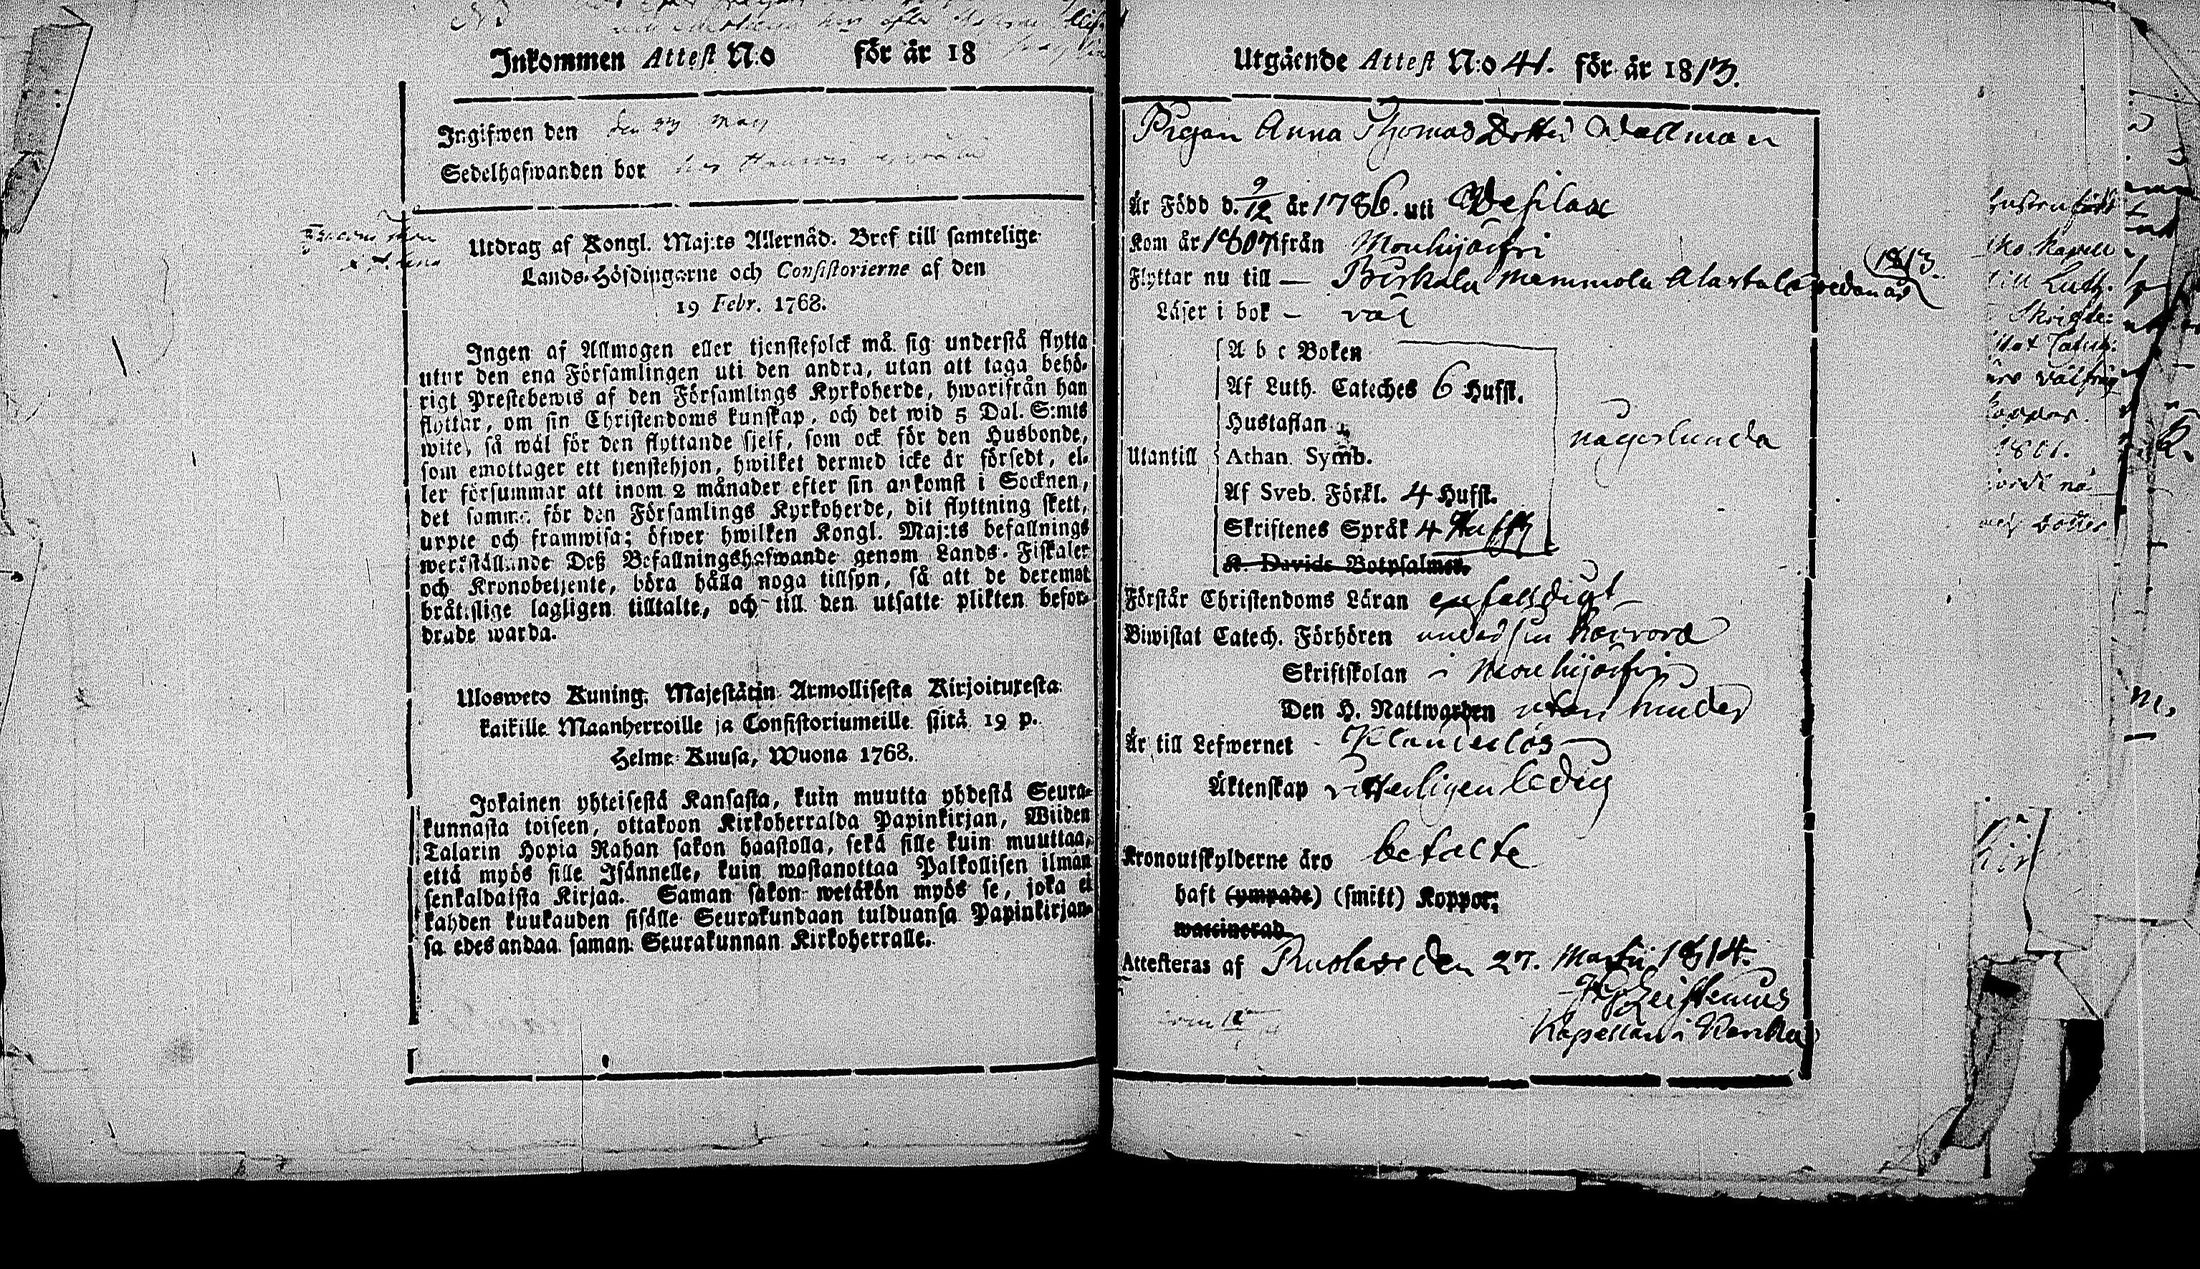 Inkommen Attest N:o för år 18
Ingifwen den den 27 May
Sedelhafwanden bor
Utdrag af Kongl. Maj:ts Allernåd. Bref till samtelige
Lands-Höfdingarne och Consistorierne af den
19 Febr. 1768.
Ingen af Allmogen eller tjenstefolck må sig understå flytta
utur den ena Församlingen uti den andra, utan att taga behö-
rigt Prestebewis af den Församlings Kyrkoherde, hwarifrån han
flyttar, om sin Christendoms kunskap, och det wid 5 Dal. S:mts
wite, så wäl för den flyttande sjelf, som ock för den Husbonde,
som emottager ett tjenstehjon, hwilket dermed icke är försedt, el-
ler försummar att inom 2 månader efter sin ankomst i Socknen,
det samma för den Församlings Kyrkoherde, dit flyttning skett,
uppte och framwisa; öfwer hwilken Kongl. Maj:ts befallnings
werkställande Deß Befallningshafwande genom Lands-Fiskaler
och Kronobetjente, böra hålla noga tillsyn, så att de deremot
brätslige lagligen tilltalte, och till den utsatte plikten befor-
drade warda.
Ulosweto Kuning. Majestätin Armollisesta Kirjoituxesta
kaikille Maanherroille ja Consistoriumeille siitä 19 p.
Helme-Kuusa, Wuona 1768.
Jokainen yhteisestä Kansasta, kuin muutta yhdestä Seura-
kunnasta toiseen, ottakoon Kirkoherralda Papinkirjan, Wiiden
Talarin Hopia Rahan sakon haastolla, sekä sille kuin muuttaa,
että myös sille Isännelle, kuin wastanottaa Palkollisen ilman
senkaldaista Kirjaa. Saman sakon wetäkön myös se, joka ei
kahden kuukauden sisälle Seurakundaan tulduansa Papinkirjan-
sa edes andaa saman Seurakunnan Kirkoherralle.
Utgående Attest N:o 41. för år 1813.
Pigan Anna Thomas Dotter Wallman
Är Född d. 9/12 år 1786. uti Wesilax
Kom år 1807 ifrån Mouhijärfvi
Flyttar nu till — Birkala Mammola Alastalo sedan år 1813.
Läser i bok — väl
A b c Boken
Af Luth. Cateches 6 Hufst.
Hustaflan
nagorlunda
Utantill Athan. Symb.
Af Sveb. Förkl. 4 Hufst.
Skriftenes Språk 4 Hufst
K. Davids Botpsalmer.
Förstår Christendoms Läran enfalldigt
Biwistat Catech. Förhören under sin
Skriftskolan i Mouhijärfvi
Den H. Nattwarden utan hinder
Är till Lefwernet Klanderlös
Äktenskap ledig
Kronoutskylderne äro betalte
haft (ympade) (smitt) Koppor;
waccinerad
Attesteras af den 27. Martii 1814.
Kapellan i